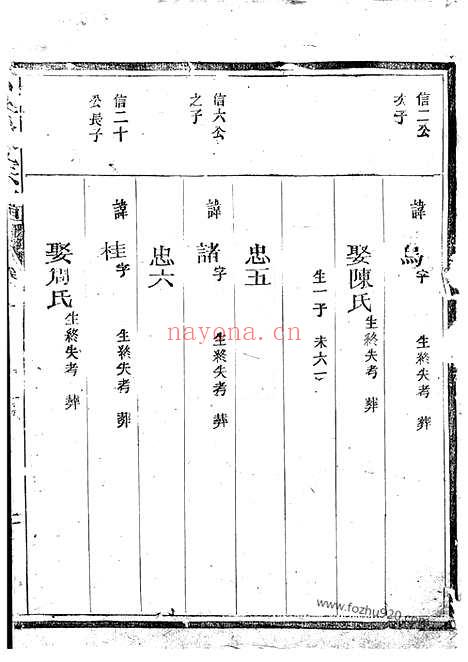 信二公
次子
諱烏字 生終失考 葬
娶陳氏 生終失考 葬
生一子 未六一
忠五
信六公
之子
諱諸字 生終失考 葬
忠六
信二十
公長子
諱桂字 生終失考 葬
娶周氏 生終失考 葬
nayona.cn
www.fozhu920.com